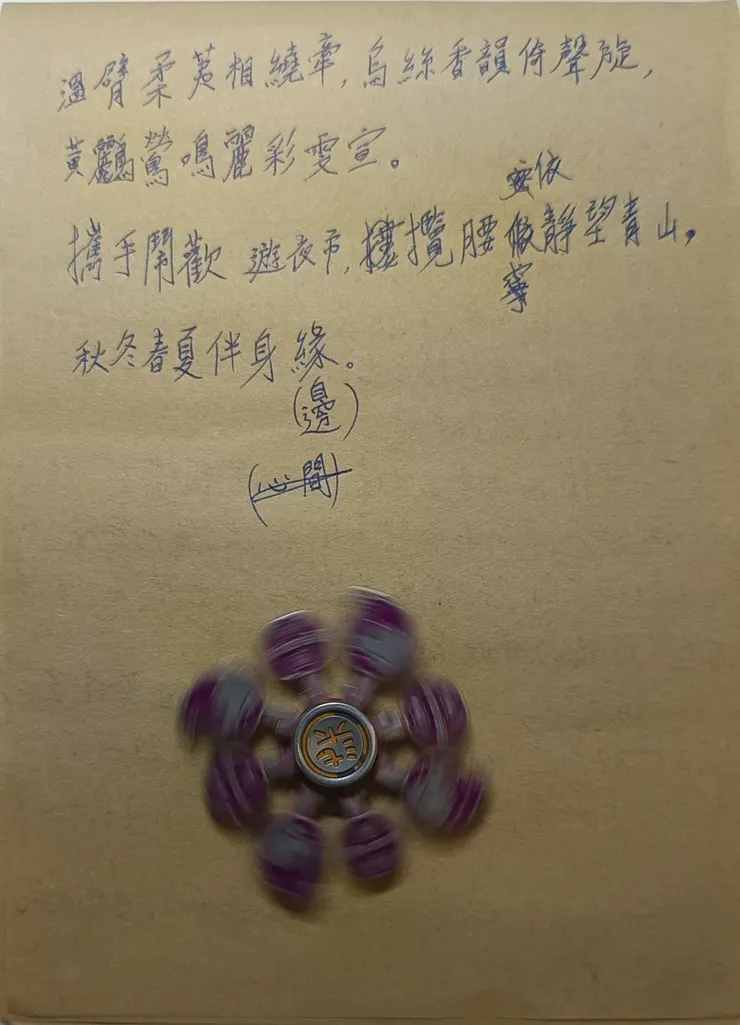 溫臂柔荑相繞牽,烏絲香韻倚聲旋,
黃鸝鶯鳴麗彩雯宣。
安依
攜手鬧歡遊夜市,摟攬腰傲靜望青山,
寧
秋冬春夏伴身緣。
(邊)
(心間)
柒